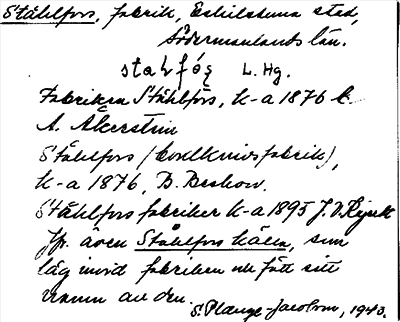 Stålfors, fabrik, Eskilstuna stad,
Södermanlands län.
staḷfǫ́ṣ L. Hg.
Fabriken Stålfors, k-a 1876 C.
A. Åkerström
Stålfors (bordknivsfabrik),
k-a 1876, B. Beskow.
Stålfors fabriker k-a 1895 J. O.
Jfr. även Stålfors källa, som
låg invid fabriken och fått sitt
namn av den.
S. Plange-Jacobson, 1943.